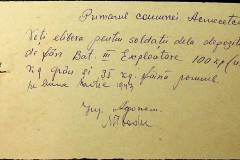 Primarul comunei
Veti elibera pentru soldatii dela depozitul
de fân Bat. III Exploatare 100 kg
kg grâu și 35 kg. făină porumb
pe luna Martie 1947
Ing. Agronom